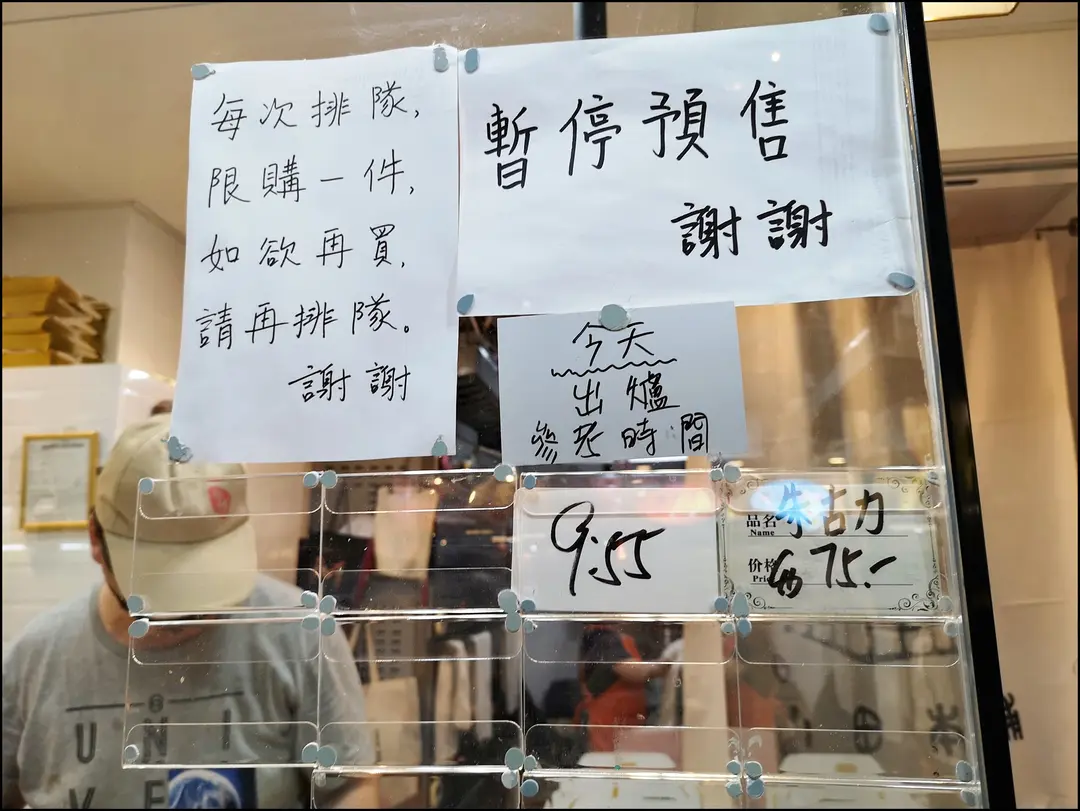 每次排隊,
限購一件,
如欲再買,
請再排隊。
謝謝
暫停預售
謝謝
今天
出爐
參考時間
9:55
品名 朱古力
Name
价格 75.-
UNI
VE